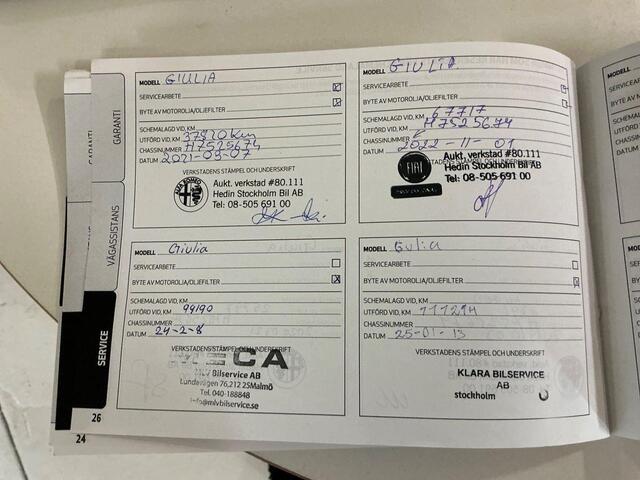 GARANTI
VÄGASSISTANS
SERVICE
26
24
MODELL GIULIA
SERVICEARBETE
BYTE AV MOTOROLJA/OLJEFILTER
SCHEMALAGD VID, KM
UTFÖRD VID, KM 37920 km
CHASSINUMMER H7525674
DATUM 2021-09-07
VERKSTADENS STÄMPEL OCH UNDERSKRIFT
ALFA ROMEO
Aukt. verkstad #80.111
Hedin Stockholm Bil AB
Tel: 08-505 691 00
MODELL GIULIA
SERVICEARBETE
BYTE AV MOTOROLJA/OLJEFILTER
SCHEMALAGD VID, KM
UTFÖRD VID, KM 67717
CHASSINUMMER H7525674
DATUM 2022-11-01
VERKSTADENS STÄMPEL OCH UNDERSKRIFT
FIAT
Aukt. verkstad #80.111
Hedin Stockholm Bil AB
Tel: 08-505 691 00
MODELL Giulia
SERVICEARBETE
BYTE AV MOTOROLJA/OLJEFILTER
SCHEMALAGD VID, KM
UTFÖRD VID, KM 99190
CHASSINUMMER
DATUM 24-2-8
VERKSTADENS STÄMPEL OCH UNDERSKRIFT
MECA
MLV Bilservice AB
Lundavägen 76,212 25Malmö
Tel. 040-188848
info@mlvbilservice.se
MODELL Gulia
SERVICEARBETE
BYTE AV MOTOROLJA/OLJEFILTER
SCHEMALAGD VID, KM
UTFÖRD VID, KM 111294
CHASSINUMMER
DATUM 25-01-13
VERKSTADENS STÄMPEL OCH UNDERSKRIFT
KLARA BILSERVICE
AB
stockholm